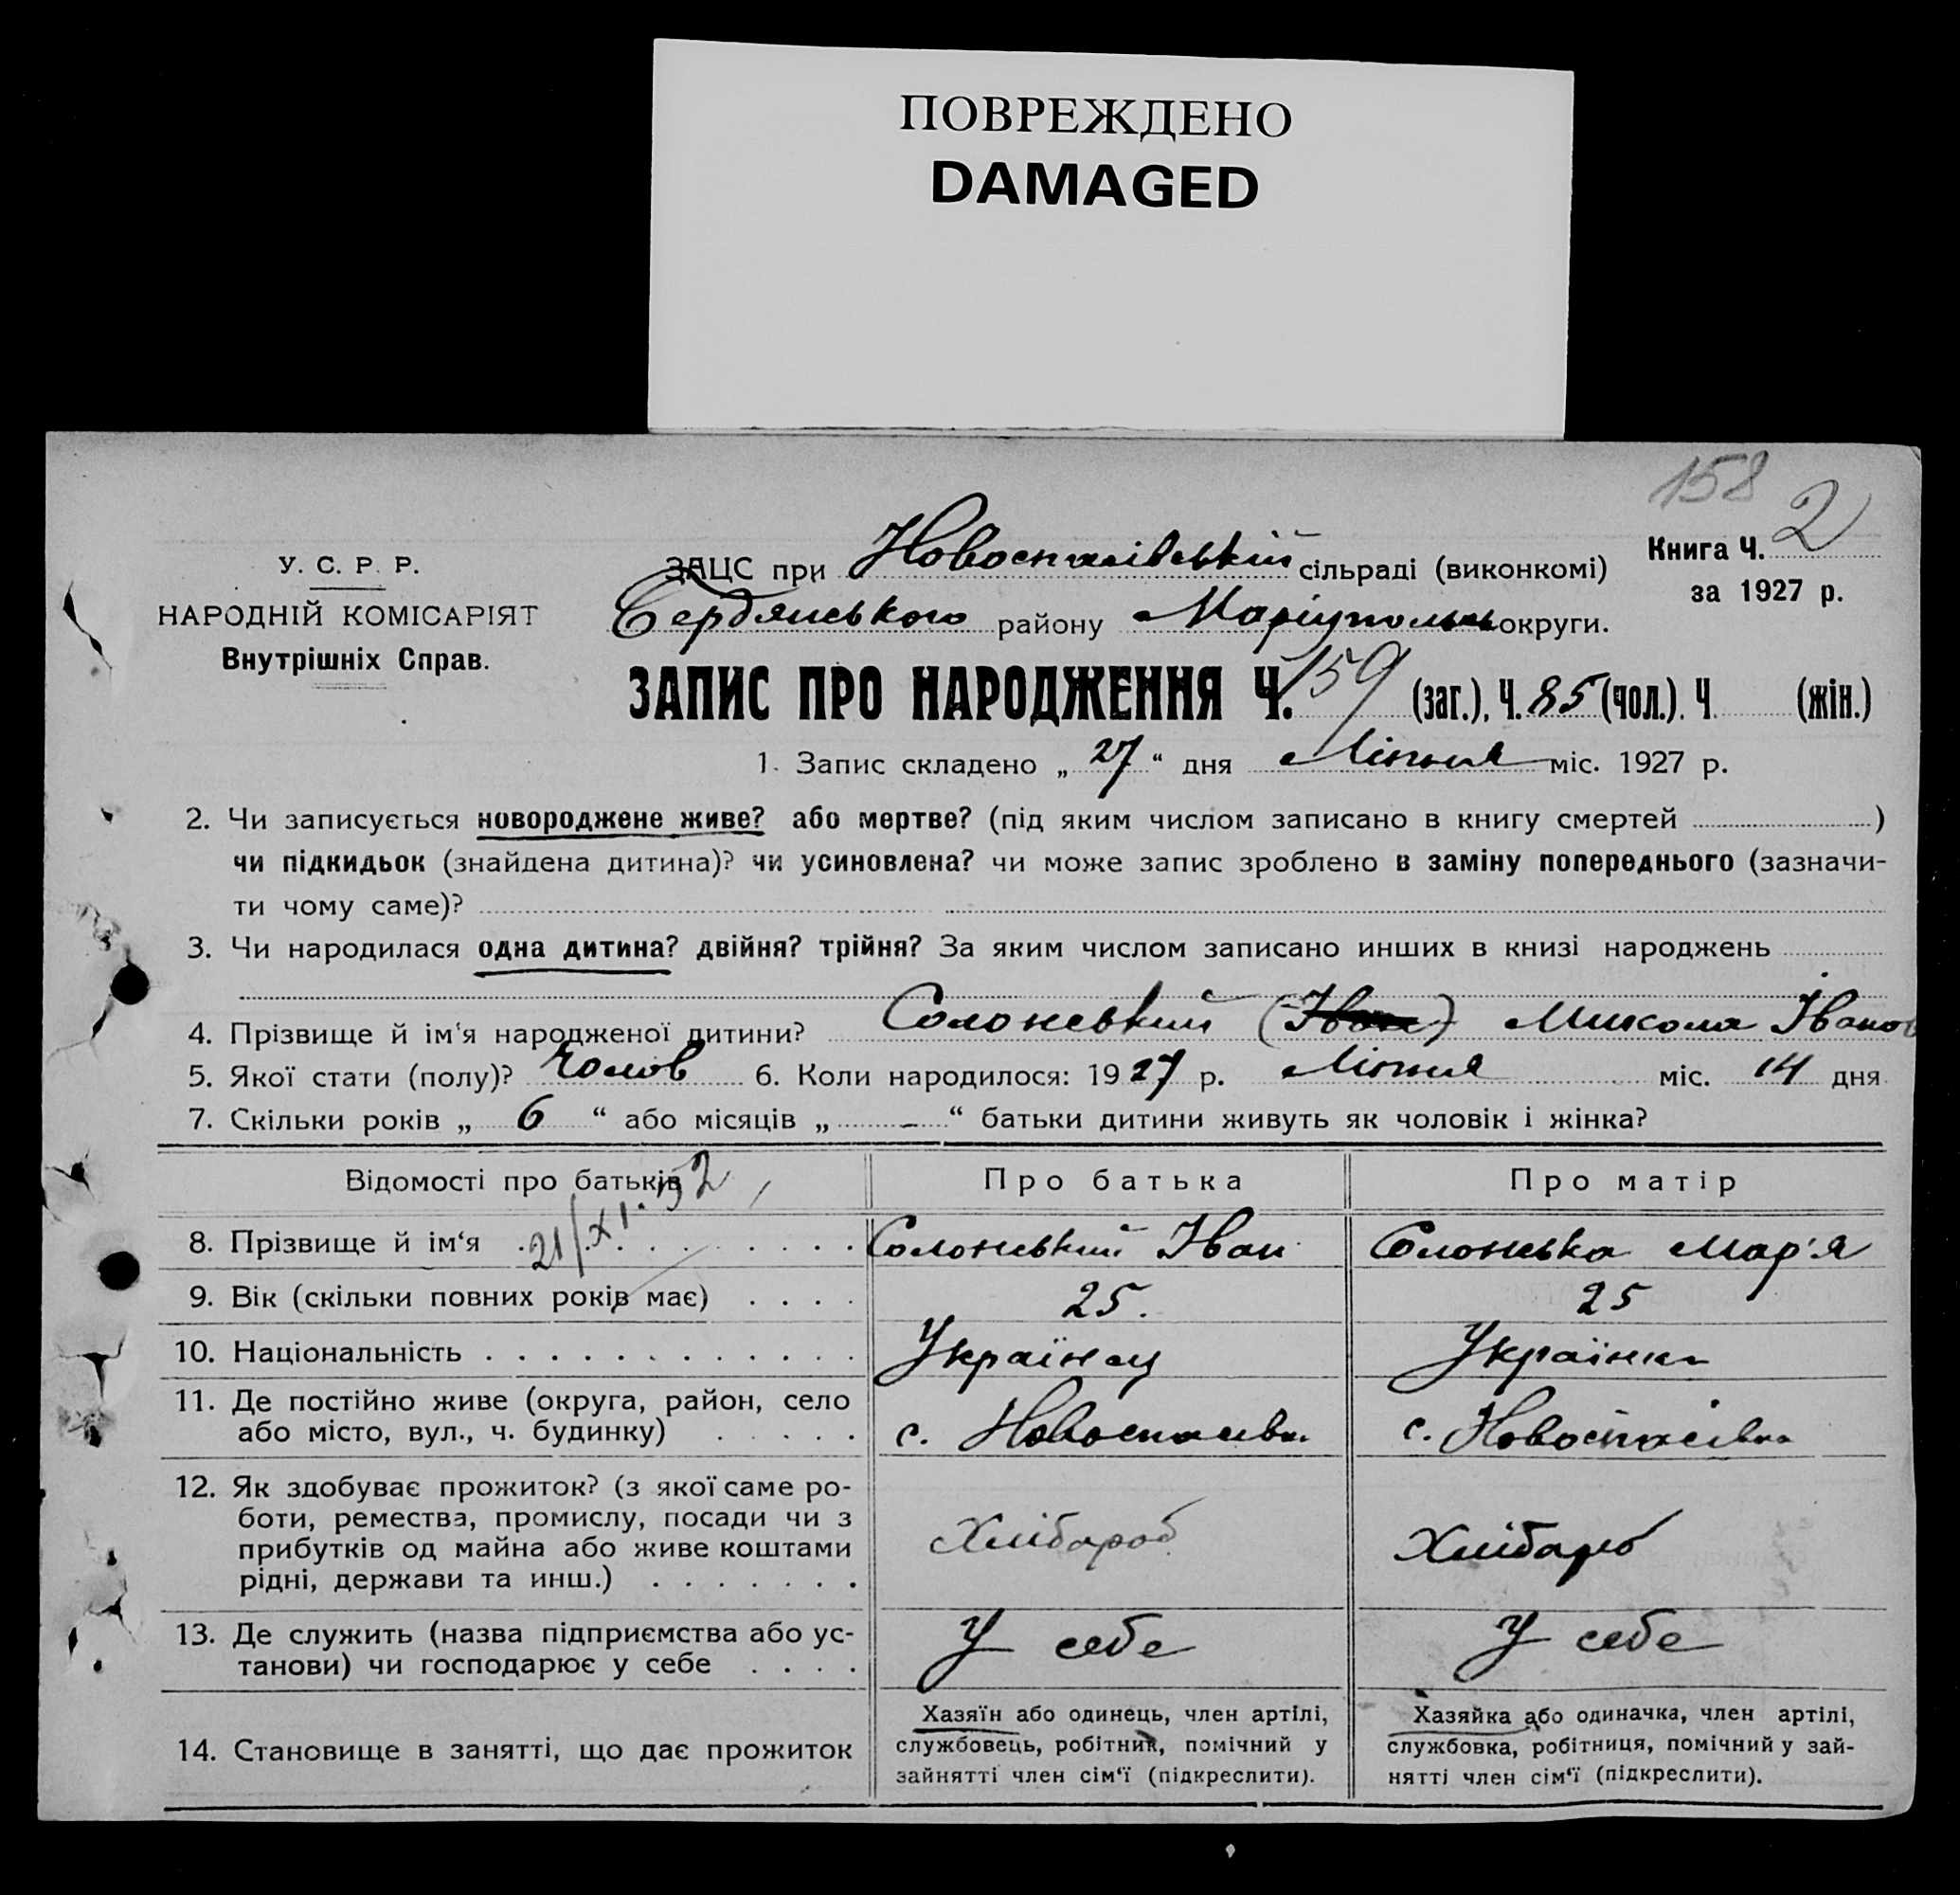 ПОВРЕЖДЕНО
DAMAGED
158
У. С. Р. Р.
НАРОДНІЙ КОМІСАРІЯТ
Внутрішніх Справ.
ЗАЦС при Новоспасівській сільраді (виконкомі)
Бердянського району Маріупольськ округи.
Книга Ч. 2
за 1927 р.
ЗАПИС ПРО НАРОДЖЕННЯ Ч. 159 (заг.), Ч. 85 (чол.). Ч. (жін.)
1. Запис складено „ 27 “ дня Липня міс. 1927 р.
2. Чи записується новороджене живе? або мертве? (під яким числом записано в книгу смертей )
чи підкидьок (знайдена дитина)? чи усиновлена? чи може запис зроблено в заміну попереднього (зазначи-
ти чому саме)?
3. Чи народилася одна дитина? двійня? трійня? За яким числом записано инших в книзі народжень
4. Прізвище й ім‘я народженої дитини? Солонський (Іван) Микола Іванов
5. Якої стати (полу)? Чолов 6. Коли народилося: 1927 р. Липня міс. 14 дня
7. Скільки років „ 6 “ або місяців „ - “ батьки дитини живуть як чоловік і жінка?
Відомості про батьків Про батька Про матір
21/XI. 52
8. Прізвище й ім‘я Солонський Іван Солонська Мар'я
9. Вік (скільки повних років має) 25. 25
10. Національність Українец Українка
11. Де постійно живе (округа, район, село
або місто, вул., ч. будинку) с. Новоспасівка с. Новоспасівка
12. Як здобуває прожиток? (з якої саме ро-
боти, ремества, промислу, посади чи з
прибутків од майна або живе коштами
рідні, держави та инш.) Хлібороб Хлібороб
13. Де служить (назва підприємства або ус-
танови) чи господарює у себе У себе У себе
14. Становище в занятті, що дає прожиток
Хазяїн або одинець, член артілі,
службовець, робітник, помічний у
зайнятті член сім‘ї (підкреслити).
Хазяйка або одиначка, член артілі,
службовка, робітниця, помічний у зай-
нятті член сім‘ї (підкреслити).